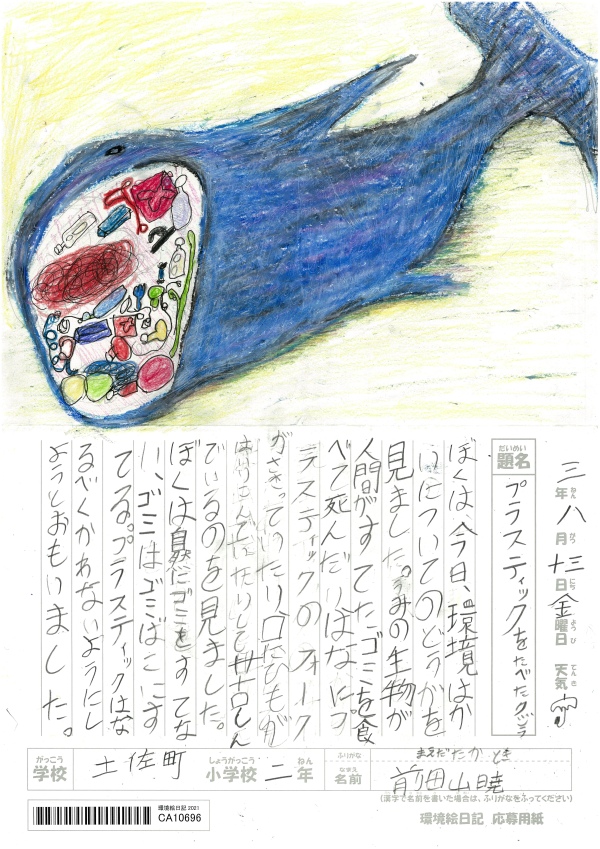 三年八月十三日金曜日 天気
ねん がつ にち ようび てんき
だいめい
題名 プラスティックをたべたクジラ
ぼくは、今日、環境はか
いについてのどうがを
見ました。うみの生物が
人間がすてたゴミを食
べて死んだりはなにプ
ラスティックのフォーク
がささっていたり、口にひもが
はいりこんでいたりして苦しん
でいるのを見ました。
ぼくは自然にゴミをすてな
い、ゴミはゴミばこにす
てる。プラスティックはな
るべくかわないようにし
ようとおもいました。
がっこう しょうがっこう ねん ふりがな まえだ たかとき
学校 土佐町 小学校 二年 なまえ 名前 前田 山暁
(漢字で名前を書いた場合は、ふりがなをふってください)
環境絵日記 2021
CA10696
環境絵日記 応募用紙